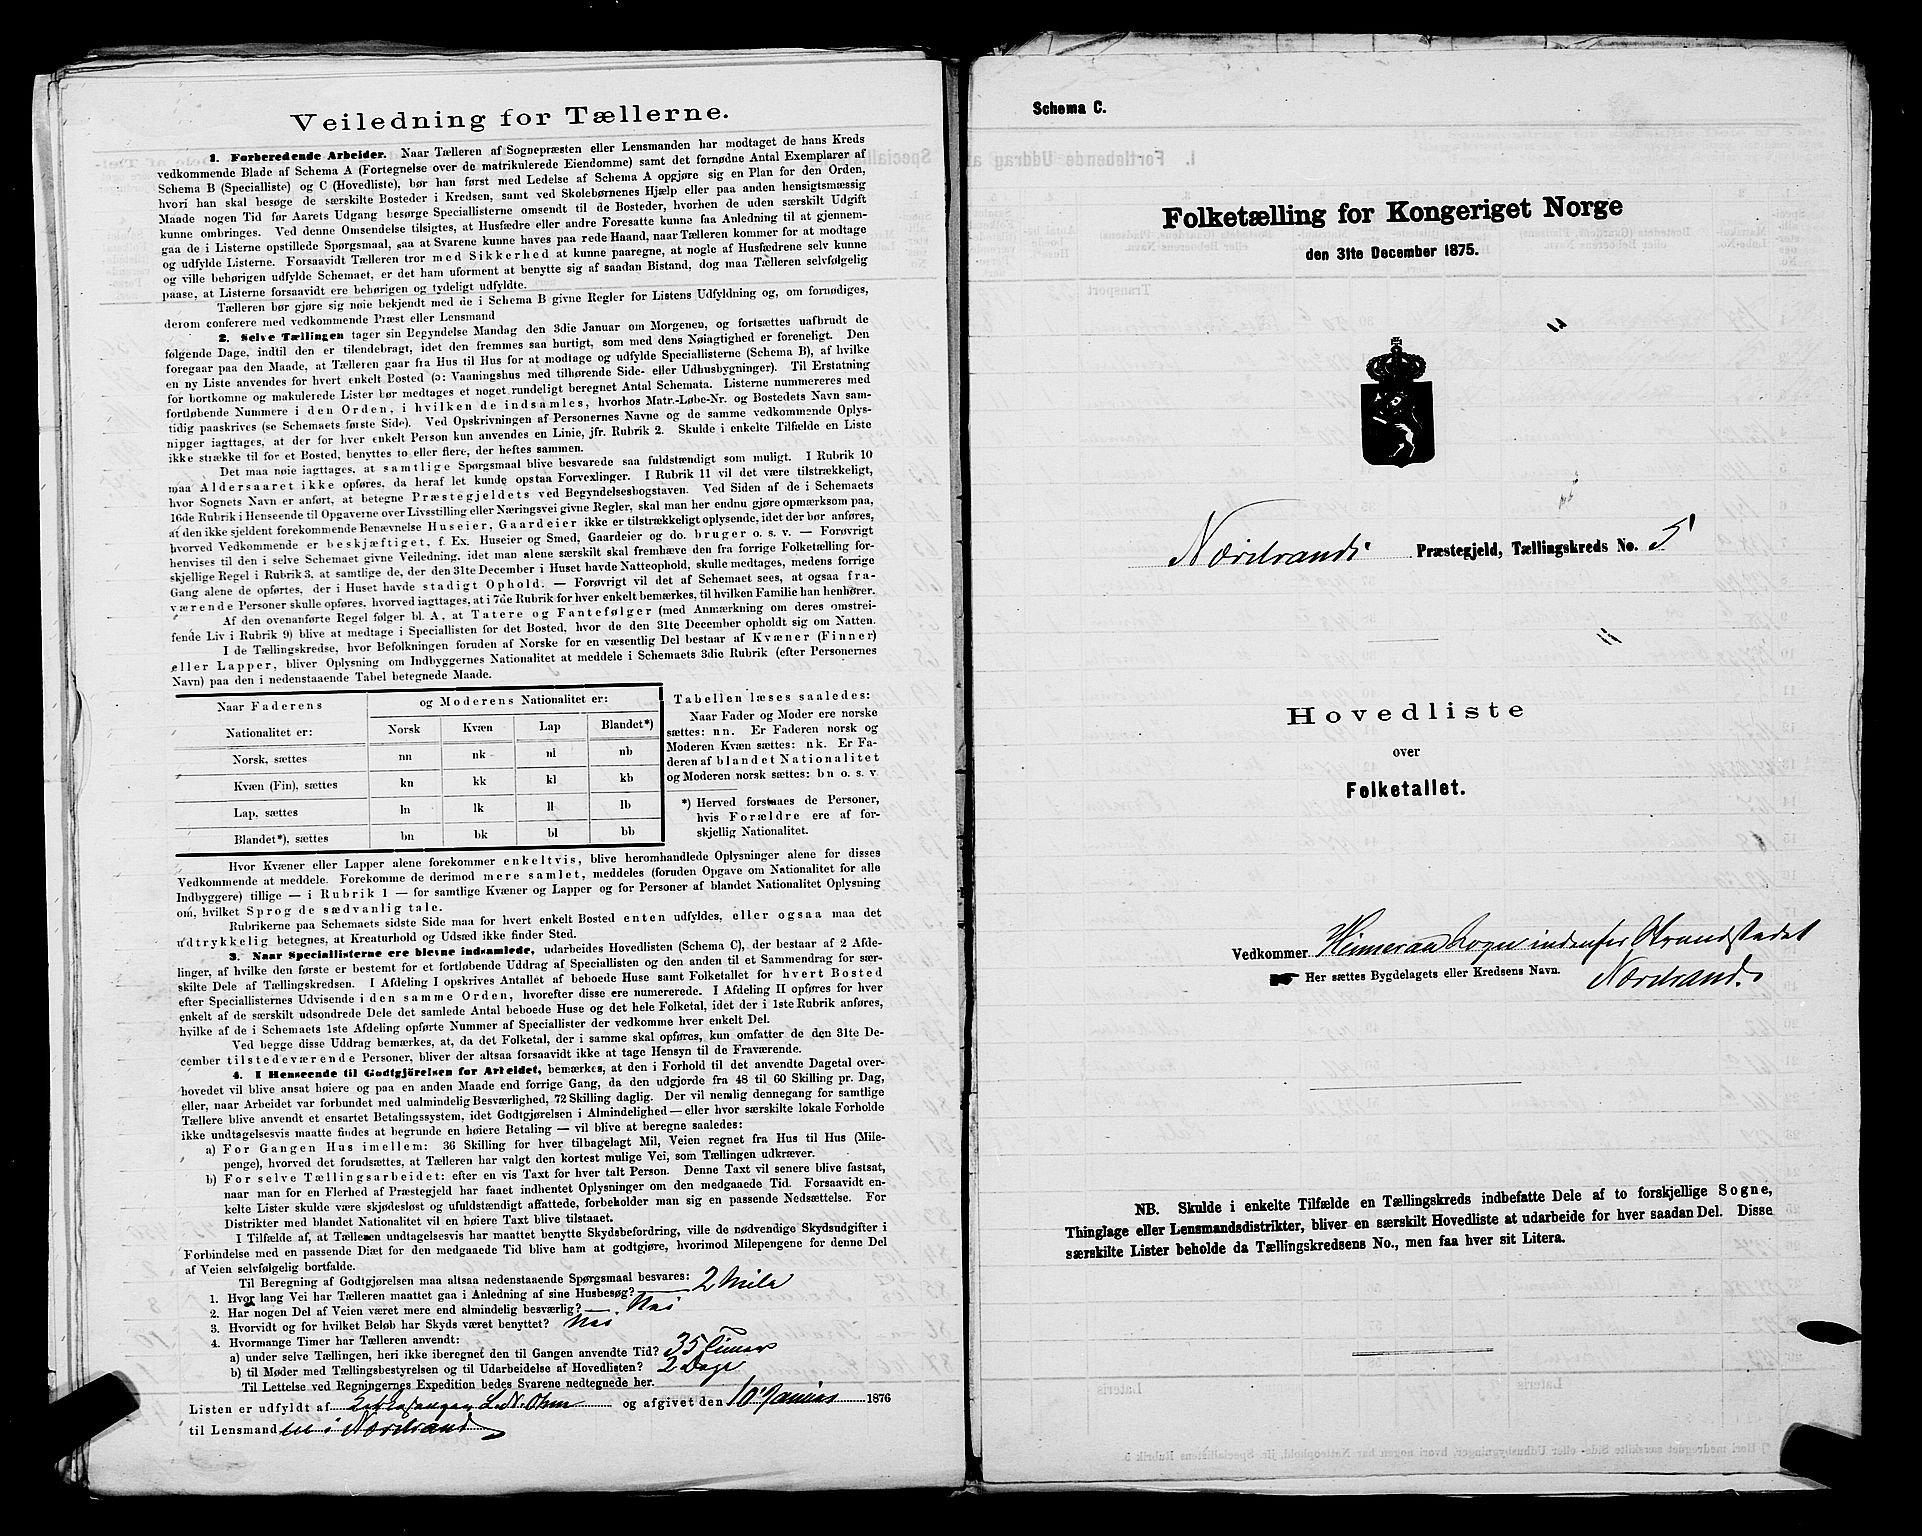 Veiledning for Tællerne.
1. Forberedende Arbeider. Naar Tælleren af Sognepræsten eller Lensmanden har modtaget de hans Kreds
vedkommende Blade af Schema A (Fortegnelse over de matrikulerede Eiendomme) samt det fornødne Antal Exemplarer af
Schema B (Specialliste) og C (Hovedliste), bør han først med Ledelse af Schema A opgjøre sig en Plan for den Orden,
hvori han skal besøge de særskilte Bosteder i Kredsen, samt ved Skolebørnenes Hjælp eller paa anden hensigtsmæssig
Maade nogen Tid før Aarets Udgang besørge Speciallisterne omsendt til de Bosteder, hvorhen de uden særskilt Udgift
kunne ombringes. Ved denne Omsendelse tilsigtes, at Husfædre eller andre Foresatte kunne faa Anledning til at gjennem-
gaa de i Listerne opstillede Spørgsmaal, saa at Svarene kunne haves paa rede Haand, naar Tælleren kommer for at modtage
og udfylde Listerne. Forsaavidt Tælleren tror med Sikkerhed at kunne paaregne, at nogle af Husfædrene selv kunne
og ville behørigen udfylde Schemaet, er det ham uforment at benytte sig af saadan Bistand, dog maa Tælleren selvfølgelig
paase, at Listerne forsaavidt ere behørigen og tydeligt udfyldte.
Tælleren bør gjøre sig nøie bekjendt med de i Schema B givne Regler for Listens Udfyldning og, om fornødiges,
derom conferere med vedkommende Præst eller Lensmand
2. Selve Tællingen tager sin Begyndelse Mandag den 3die Januar om Morgenen, og fortsættes uafbrudt de
følgende Dage, indtil den er tilendebragt, idet den fremmes saa hurtigt, som med dens Nøiagtighed er foreneligt. Den
foregaar paa den Maade, at Tælleren gaar fra Hus til Hus for at modtage og udfylde Speciallisterne (Schema B), af hvilke
en ny Liste anvendes for hvert enkelt Bosted (ɔ: Vaaningshus med tilhørende Side- eller Udhusbygninger). Til Erstatning
for bortkomne og makulerede Lister bør medtages et noget rundeligt beregnet Antal Schemata. Listerne nummereres med
fortløbende Nummere i den Orden, i hvilken de indsamles, hvorhos Matr.-Løbe-Nr. og Bostedets Navn sam-
tidig paaskrives (se Schemaets første Side). Ved Opskrivningen af Personernes Navne og de samme vedkommende Oplys-
nipger iagttages, at der for hver enkelt Person kun anvendes en Linie, jfr. Rubrik 2. Skulde i enkelte Tilfælde en Liste
ikke strække til for et Bosted, benyttes to eller flere, der heftes sammen.
Det maa nøie iagttages, at samtlige Spørgsmaal blive besvarede saa fuldstændigt som muligt. I Rubrik 10
maa Aldersaaret ikke opføres, da heraf let kunde opstaa Forvexlinger. I Rubrik 11 vil det være tilstrækkeligt,
hvor Sognets Navn er anført, at betegne Præstegjeldets ved Begyndelsesbogstaven. Ved Siden af de i Schemaets
16de Rubrik i Henseende til Opgaverne over Livsstilling eller Næringsvei givne Regler, skal man her endnu gjøre opmærksom paa,
at den ikke sjeldent forekommende Benævnelse Huseier, Gaardeier ikke er tilstrækkeligt oplysende, idet der bør anføres,
hvorved Vedkommende er beskjæftiget, f. Ex. Huseier og Smed, Gaardeier og do. bruger o. s. v. — Forøvrigt
henvises til den i selve Schemaet givne Veiledning, idet man alene særskilt skal fremhæve den fra forrige Folketælling for-
skjellige Regel i Rubrik 3, at samtlige de, der den 31te December i Huset havde Natteophold, skulle medtages, medens forrige
Gang alene de opførtes, der i Huset havde stadigt Ophold. — Forøvrigt vil det af Schemaet sees, at ogsaa fra-
værende Personer skulle opføres, hvorved iagttages, at i 7de Rubrik for hver enkelt bemærkes, til hvilken Familie han henhører.
Af den ovenanførte Regel følger bl. A, at Tatere og Fantefølger (med Anmærkning om deres omstrei-
fende Liv i Rubrik 9) blive at medtage i Speciallisten for det Bosted, hvor de den 31te December opholdt sig om Natten.
I de Tællingskredse, hvor Befolkningen foruden af Norske for en væsentlig Del bestaar af Kvæner (Finner)
eller Lapper, bliver Oplysning om Indbyggernes Nationalitet at meddele i Schemaets 3die Rubrik (efter Personernes
Navn) paa den i nedenstaaende Tabel betegnede Maade.
Naar Faderens og Moderens Nationalitet er:
Nationalitet er: Norsk Kvæn Lap Blandet*)
Norsk, sættes nn nk nl nb
Kvæn (Fin), sættes kn kk kl kb
Lap, sættes ln lk ll lb
Blandet*), sættes bn bk bl bb
Tabellen læses saaledes:
Naar Fader og Moder ere norske
sættes: nn. Er Faderen norsk og
Moderen Kvæn sættes: nk. Er Fa-
deren af blandet Nationalitet
og Moderen norsk sættes: bn o. s. v.
*) Herved forstaaes de Personer,
hvis Forældre ere af for-
skjellig Nationalitet.
Hvor Kvæner eller Lapper alene forekommer enkeltvis, blive heromhandlede Oplysninger alene for disses
Vedkommende at meddele. Forekomme de derimod mere samlet, meddeles (foruden Opgave om Nationalitet for alle
Indbyggere) tillige — i Rubrik 1 — for samtlige Kvæner og Lapper og for Personer af blandet Nationalitet Oplysning
om, hvilket Sprog de sædvanlig tale.
Rubrikerne paa Schemaets sidste Side maa for hvert enkelt Bosted enten udfyldes, eller ogsaa maa det
udtrykkelig betegnes, at Kreaturhold og Udsæd ikke finder Sted.
3. Naar Speciallisterne ere blevne indsamlede, udarbeides Hovedlisten (Schema C), der bestaar af 2 Afde-
linger, af hvilke den første er bestemt for et fortløbende Uddrag af Speciallisten og den anden til et Sammendrag for sær-
skilte Dele af Tællingskredsen. I Afdeling I opskrives Antallet af beboede Huse samt Folketallet for hvert Bosted
efter Speciallisternes Udvisende i den samme Orden, hvorefter disse ere numererede. I Afdeling II opføres for hver
enkelt af de særskilt udsondrede Dele det samlede Antal beboede Huse og det hele Folketal, idet der i 1ste Rubrik anføres,
hvilke af de i Schemaets 1ste Afdeling opførte Nummer af Speciallister der vedkomme hver enkelt Del.
Ved begge disse Uddrag bemærkes, at, da det Folketal, der i samme skal opføres, kun omfatter de den 31te De-
cember tilstedeværende Personer, bliver der altsaa forsaavidt ikke at tage Hensyn til de Fraværende.
4. I Henseende til Godtgjörelsen for Arbeidet, bemærkes, at den i Forhold til det anvendte Dagetal over-
hovedet vil blive ansat høiere og paa en anden Maade end forrige Gang, da den udgjorde fra 48 til 60 Skilling pr. Dag,
eller, naar Arbeidet var forbundet med ualmindelig Besværlighed, 72 Skilling daglig. Der vil nemlig dennegang for samtlige
Tællere blive anvendt et ensartet Betalingssystem, idet Godtgjörelsen i Almindelighed — eller hvor særskilte lokale Forholde
ikke undtagelsesvis maatte findes at begrunde en høiere Betaling — vil blive at beregne saaledes:
a) For Gangen Hus imellem: 36 Skilling for hver tilbagelagt Mil, Veien regnet fra Hus til Hus (Mile-
penge), hvorved det forudsættes, at Tælleren har valgt den kortest mulige Vei, som Tællingen udkræver.
b) For selve Tællingsarbeidet: efter en vis Taxt for hver talt Person. Denne Taxt vil senere blive fastsat,
naar man for en Flerhed af Præstegjeld har faaet indhentet Oplysninger om den medgaaede Tid. Forsaavidt en-
kelte Lister skulde være skjødesløst og ufuldstændigt affattede, forbeholder man sig en passende Nedsættelse. For
Distrikter med blandet Nationalitet vil en høiere Taxt blive tilstaaet.
I Tilfælde af, at Tælleren undtagelsesvis har maattet benytte Skydsbefordring, ville de nødvendige Skydsudgifter i
Forbindelse med en passende Diæt for den medgaaede Tid blive ham at godtgjøre, hvorimod Milepengene for denne Del
af Veien selvfølgelig bortfalde.
Til Beregning af Godtgjörelsen maa altsaa nedenstaaende Spørgsmaal besvares:
1. Hvor lang Vei har Tælleren maattet gaa i Anledning af sine Husbesøg? 2 Mile
2. Har nogen Del af Veien været mere end almindelig besværlig? Nei
3. Hvorvidt og for hvilket Beløb har Skyds været benyttet? Nei
4. Hvormange Timer har Tælleren anvendt:
a) under selve Tællingen, heri ikke iberegnet den til Gangen anvendte Tid? 35 Timer
b) til Møder med Tællingsbestyrelsen og til Udarbeidelse af Hovedlisten? 2 Dage
Til Lettelse ved Regningernes Expedition bedes Svarene nedtegnede her.
Listen er udfyldt af Kirkesanger L. N. Ohm og afgivet den 10' Januar 1876
til Lensmanden i Nærstrand
Schema C.
Folketælling for Kongeriget Norge
den 31te December 1875.
Nærstrands Præstegjeld, Tællingskreds No. 5
Hovedliste
over
Folketallet.
Vedkommer Himeraa Sogn indenfor Strandstedet
Her sættes Bygdelagets eller Kredsens Navn. Nærstrand.
NB. Skulde i enkelte Tilfælde en Tællingskreds indbefatte Dele af to forskjellige Sogne,
Thinglage eller Lensmandsdistrikter, bliver en særskilt Hovedliste at udarbeide for hver saadan Del. Disse
særskilte Lister beholde da Tællingskredsens No., men faa hver sit Litera.